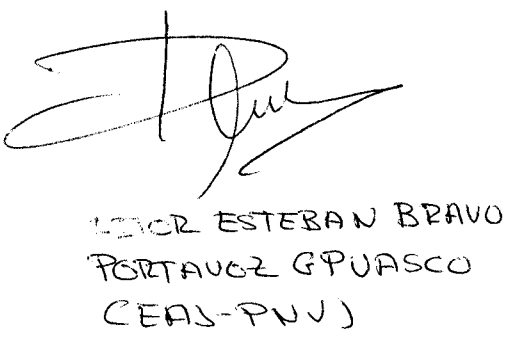 ESTEBAN BRAVO
PORTAVOZ GPUASCO
CEAS-PNV)